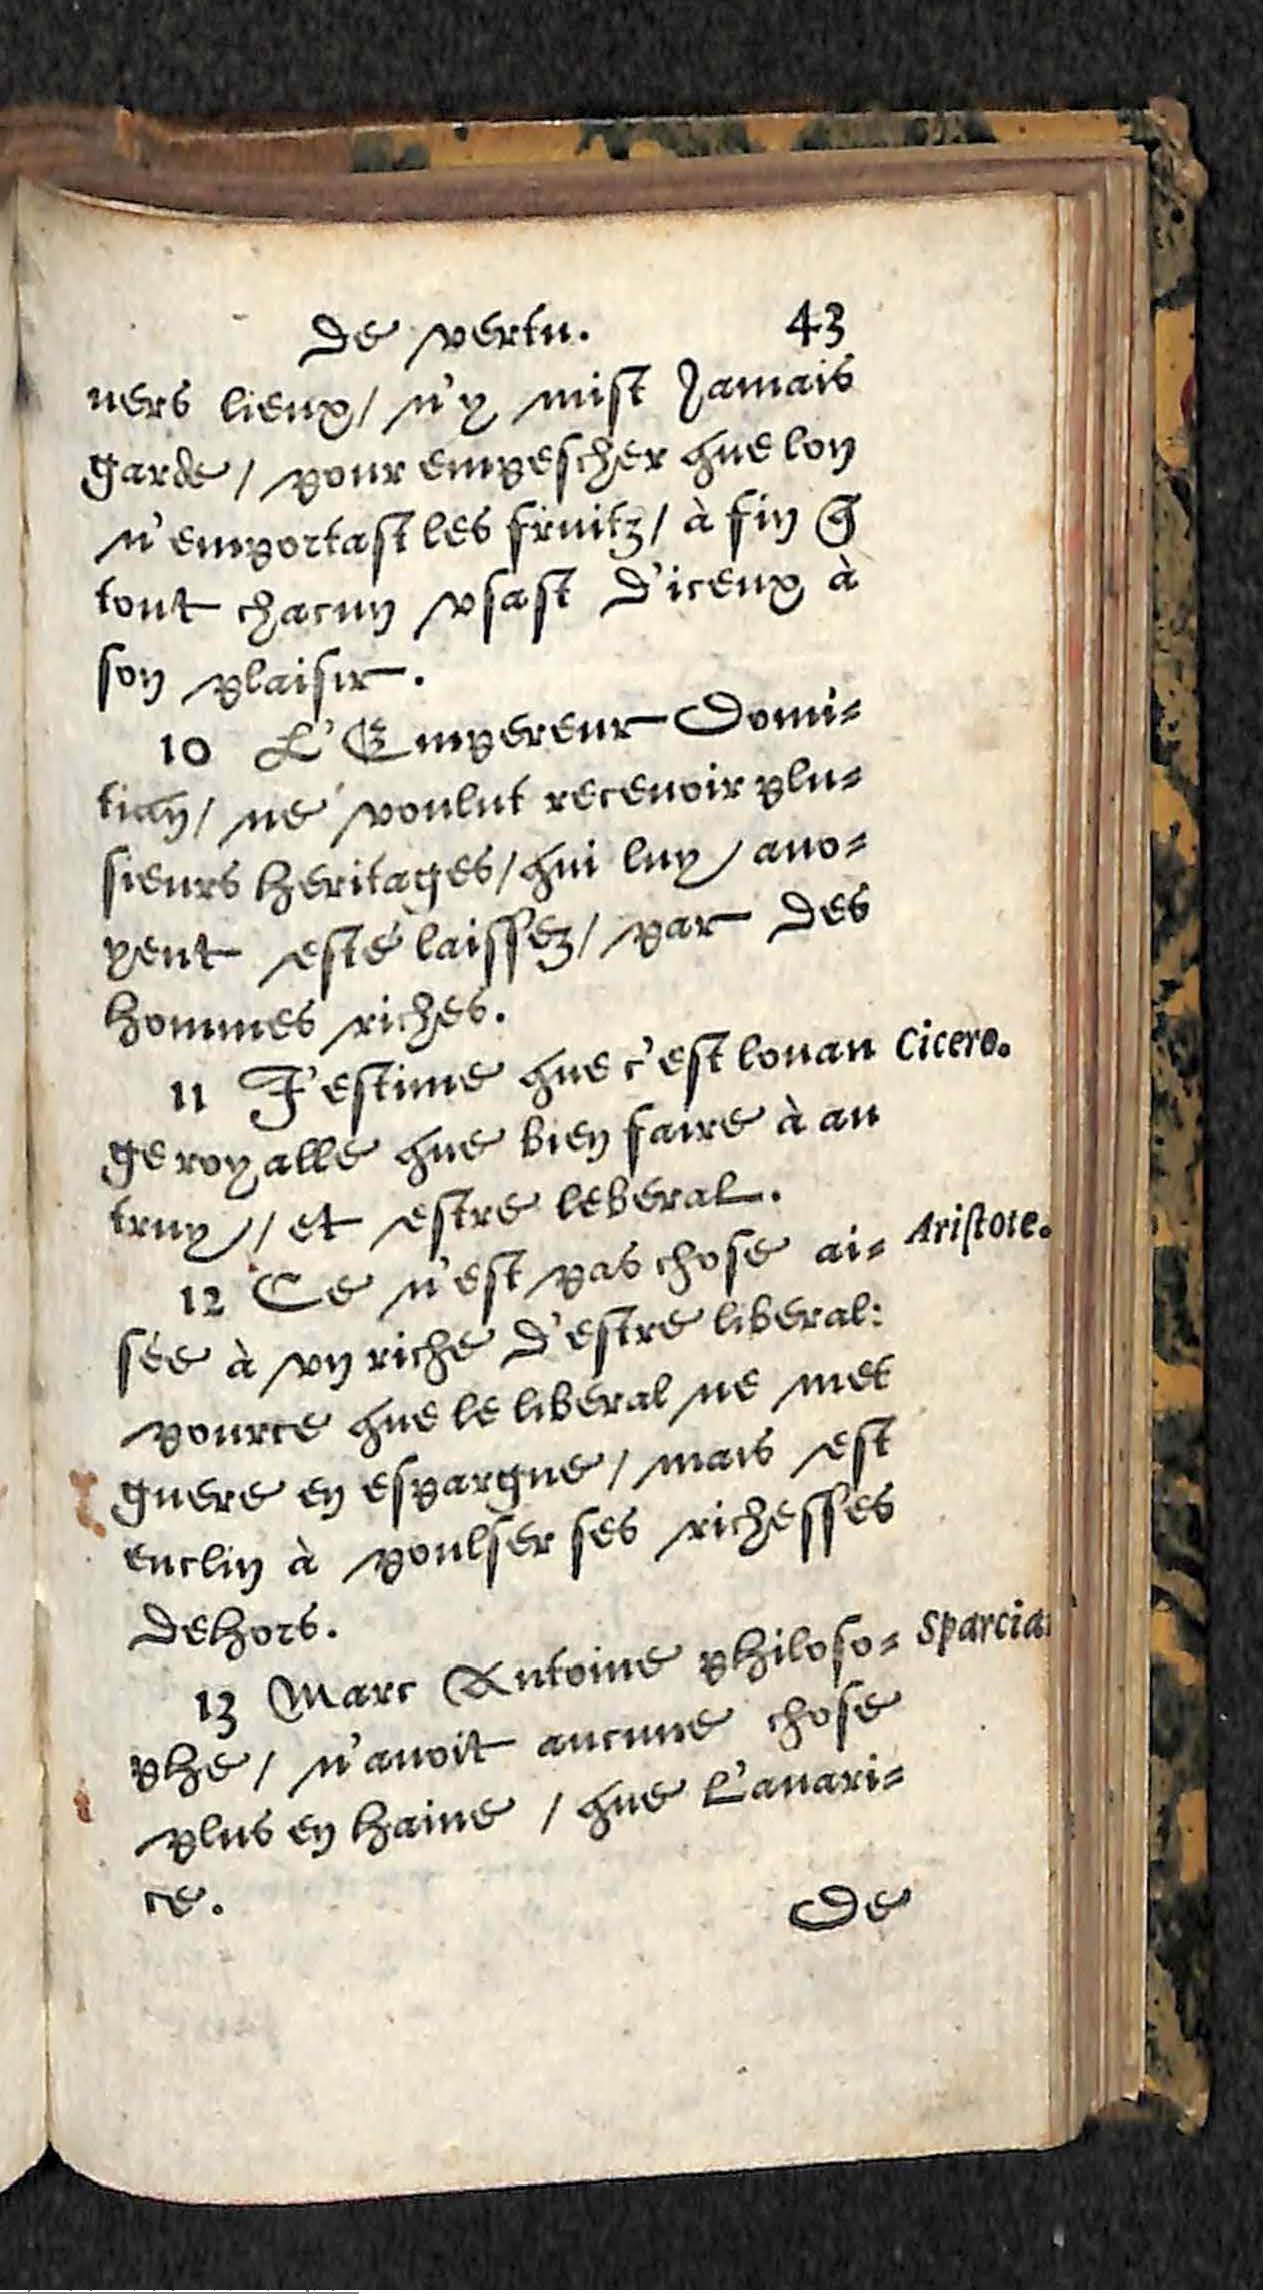 de vertu. 43
uers lieux/ n'y mist Jamais
garde/ pour empescher que lon
n'emportast les fruitz/ à fin q̃
tout chacun vsast d'iceux à
son plaisir.
10 L'Empereur Domi=
tian/ ne voulut receuoir plu=
sieurs heritages/ qui luy auo=
yent esté laissez/ par des
hommes riches.
11 J'estime que c'est louan Cicero.
ge royalle que bien faire à au
truy/ et estre leberal.
12 Ce n'est pas chose ai= Aristote.
sée à vn riche d'estre liberal:
pource que le liberal ne met
guere en espargne/ mais est
enclin à poulser ses richesses
dehors.
13 Marc Antoine philoso= Sparcia
phe/ n'auoit aucune chose
plus en haine/ que L'auari=
ce.
De